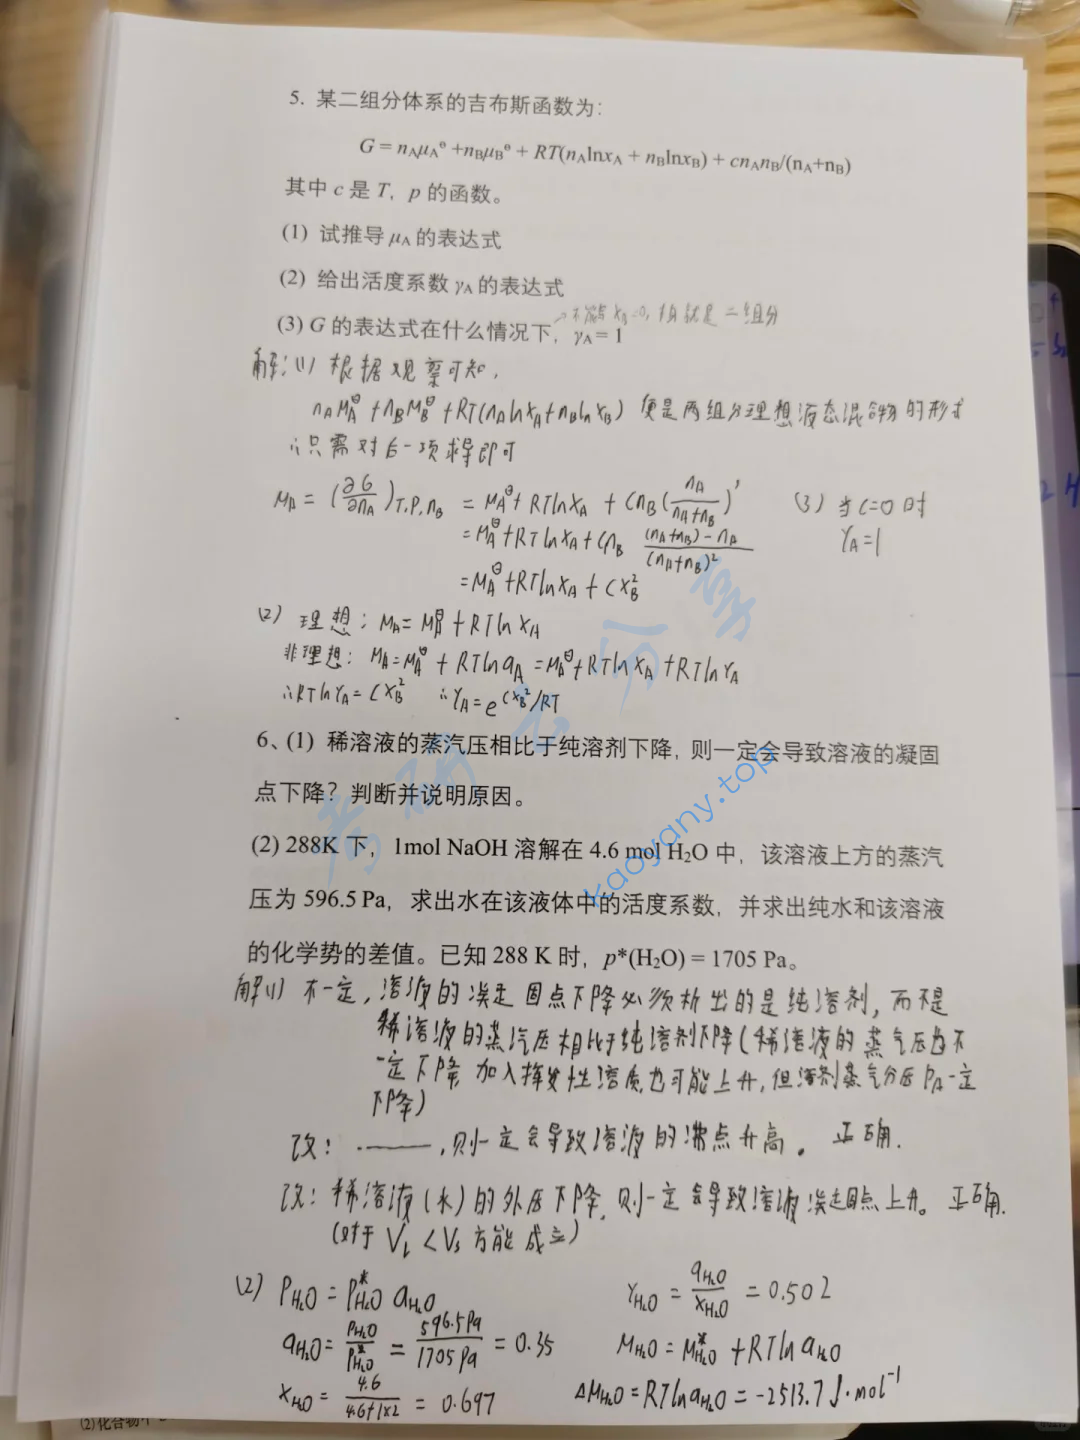 5. 某二组分体系的吉布斯函数为:
G = nAμA⊖ +nBμB⊖ + RT(nAlnxA + nBlnxB) + cnAnB/(nA+nB)
其中 c 是 T, p 的函数。
(1) 试推导 μA 的表达式
(2) 给出活度系数 γA 的表达式
→不能 xB=0, 就是二组分
(3) G 的表达式在什么情况下, γA = 1
解:(1) 根据观察可知,
nAμA⊖ + nBμB⊖ + RT(nAlnxA+nBlnxB) 便是两组分理想液态混合物的形式
∴只需对后一项求导即可
μA = (∂G/∂nA)T,P,nB = μA⊖ + RTlnxA + CnB(nA/(nA+nB))′
(3) 当C=0时
= μA⊖ + RTlnxA + CnB ((nA+nB)-nA)/(nA+nB)²
γA=1
= μA⊖ + RTlnxA + CxB²
(2) 理想: μA = μA⊖ + RTlnxA
非理想: μA = μA⊖ + RTlnaA = μA⊖ + RTlnxA + RTlnγA
∴RTlnγA = CxB² ∴γA = e^(CxB²/RT)
6、(1) 稀溶液的蒸汽压相比于纯溶剂下降, 则一定会导致溶液的凝固
点下降? 判断并说明原因。
(2) 288K 下, 1mol NaOH 溶解在 4.6 mol H2O 中, 该溶液上方的蒸汽
压为 596.5 Pa, 求出水在该液体中的活度系数, 并求出纯水和该溶液
的化学势的差值。已知 288 K 时, p*(H2O) = 1705 Pa。
解(1) 不一定, 溶液的凝固点下降必须析出的是纯溶剂, 而不是
稀溶液的蒸汽压相比于纯溶剂下降(稀溶液的蒸气压也不
一定下降 加入挥发性溶质也可能上升, 但溶剂蒸气分压 PA一定
下降)
改: ———, 则一定会导致溶液的沸点升高。 正确.
改: 稀溶液(水)的外压下降, 则一定会导致溶液凝固点上升。 正确.
(对于 VL < Vs 方能成立)
(2) PH2O = P*H2O aH2O
γH2O = aH2O/xH2O = 0.502
aH2O = PH2O/P*H2O = 596.5Pa/1705Pa = 0.35
μH2O = μ*H2O + RTlnaH2O
xH2O = 4.6/(4.6+1×2) = 0.697
ΔμH2O = RTlnaH2O = -2513.7 J·mol⁻¹
考研云分享
kaoyany.top
(2)化合物